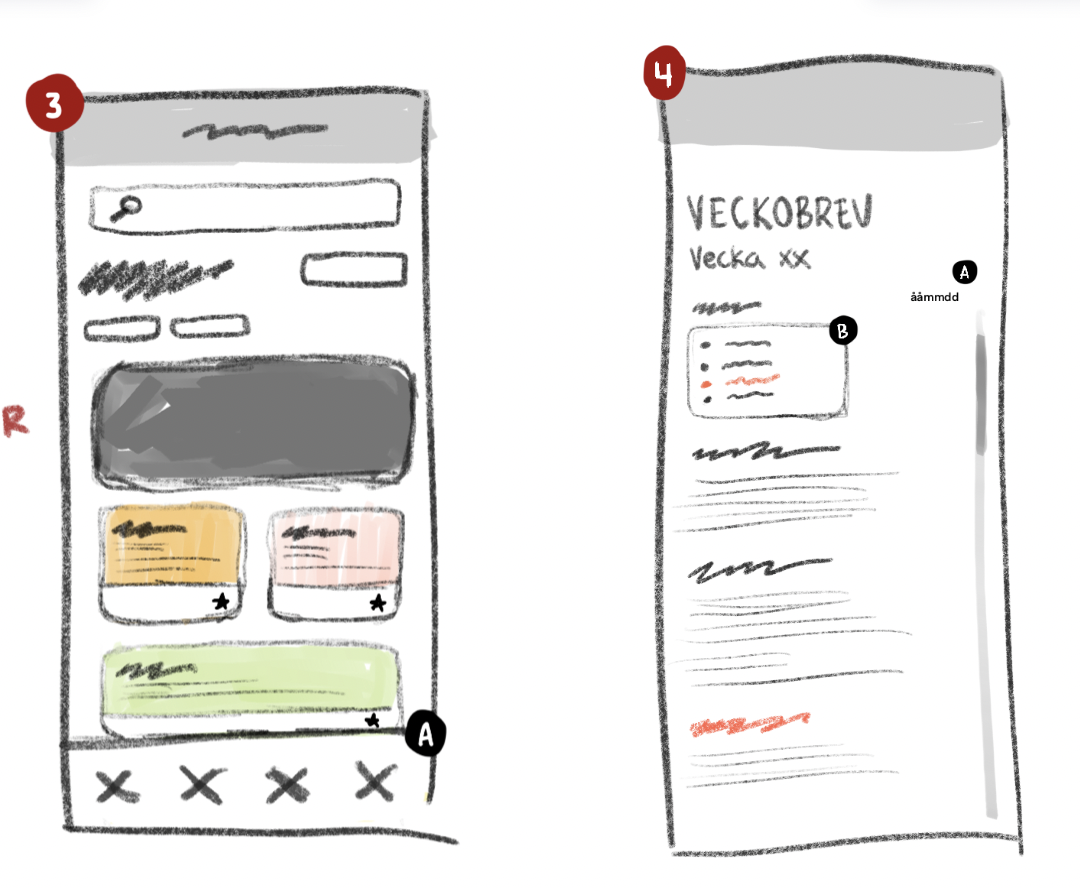 3
A
R
4
VECKOBREV
Vecka xx
A
ååmmdd
B